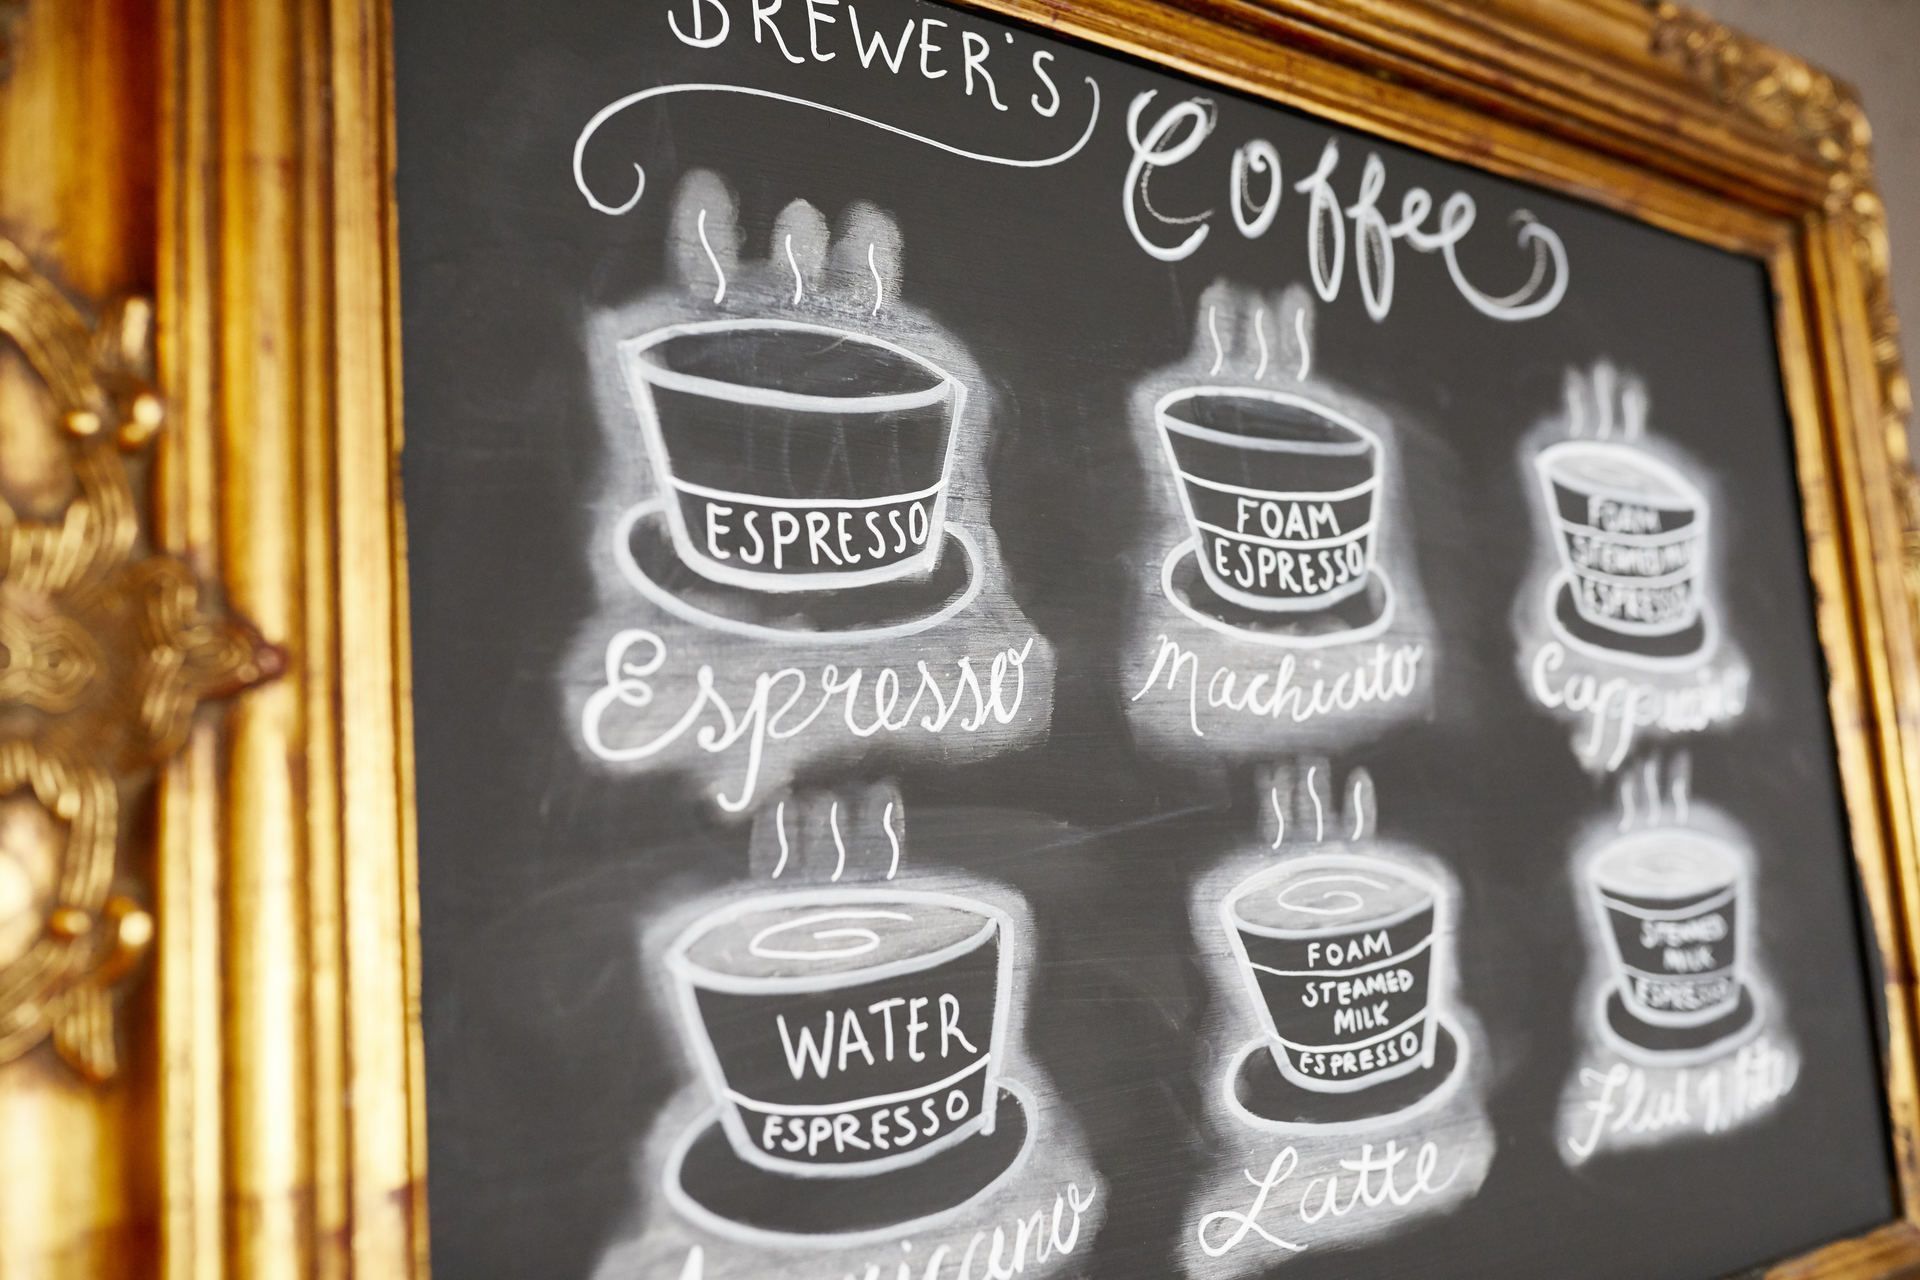 BREWER'S
Coffee
ESPRESSO
Espresso
FOAM
ESPRESSO
Machicato
FOAM
STEAMED MILK
ESPRESSO
WATER
ESPRESSO
FOAM
STEAMED
MILK
ESPRESSO
Latte
STEAMED
MILK
ESPRESSO
Flat White